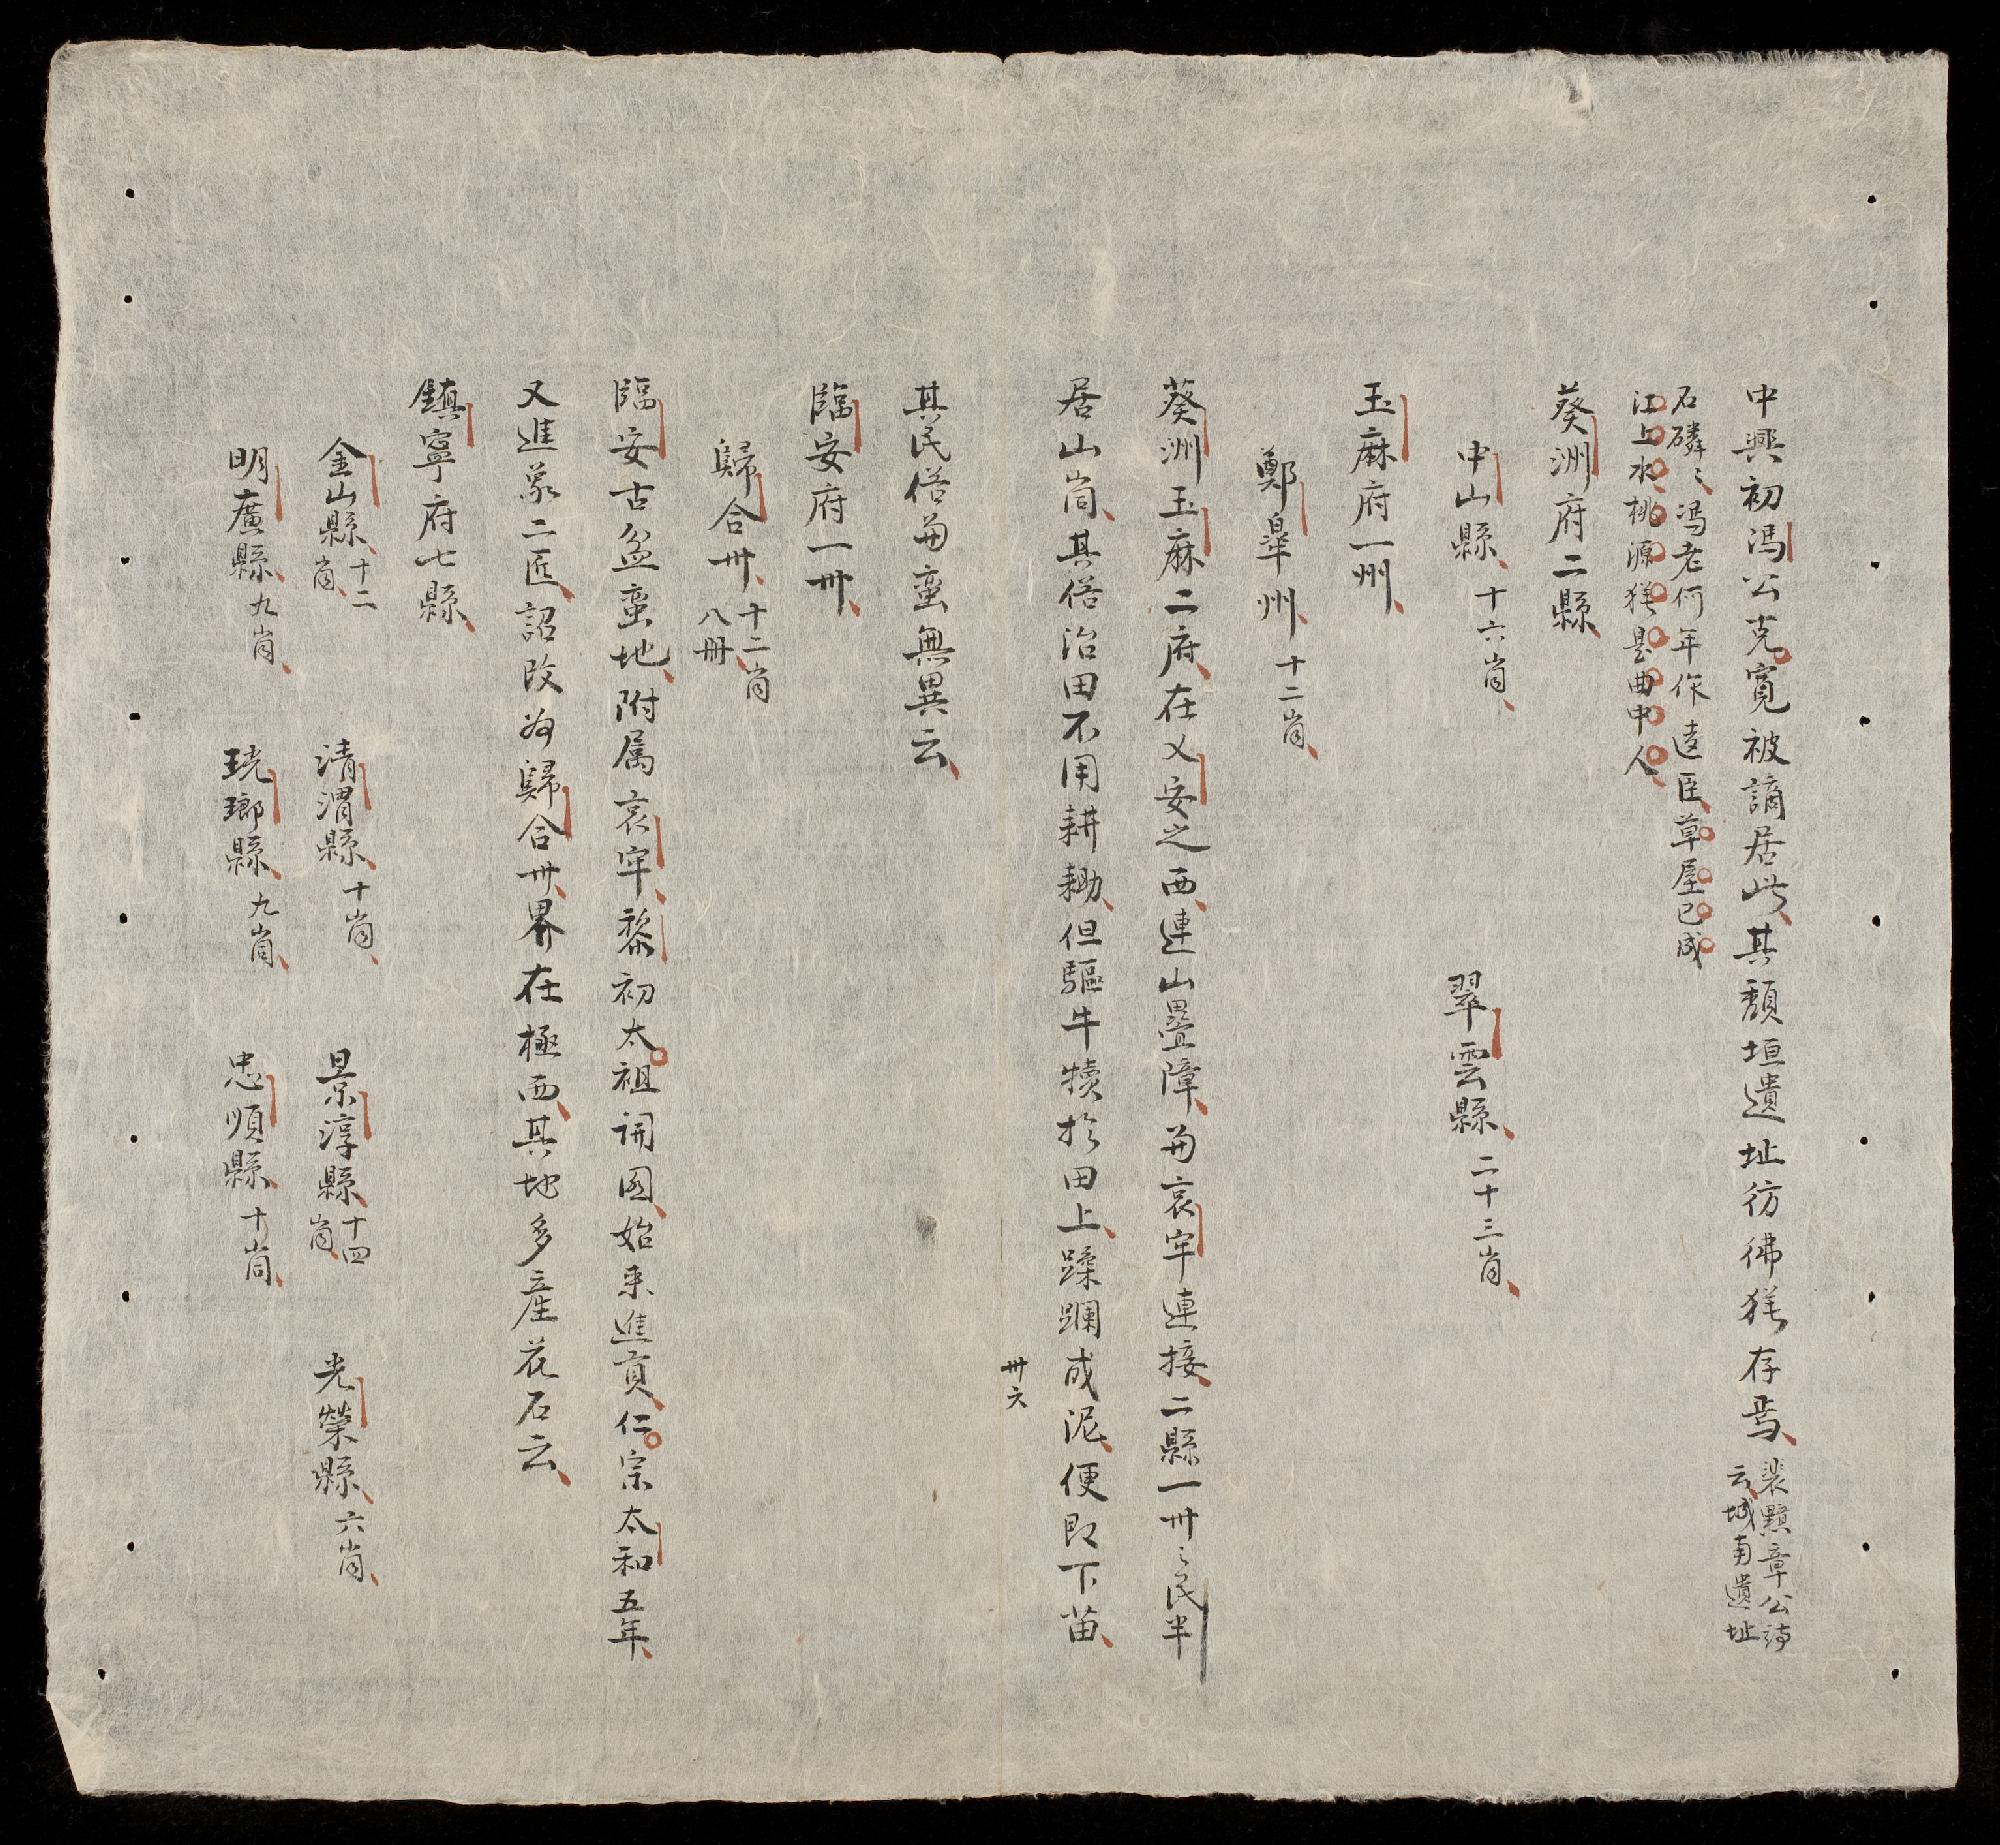 中興初馮公克寬被謫居此其頹垣遺址彷彿猶存焉裴黙章公詩云城南遺址
石磷〻馮老何年作逺臣草屋已成
江上水桃源猶是曲中人
葵洲府二縣
中山縣十六峝　翠雲縣二十三峝
玉麻府一州
鄭皐州十二峝
葵洲玉麻二府在乂安之西連山疊障與哀牢連接二縣一卅〻民半
居山峝其俗治田不用耕耡但驅牛犢於田上蹂躝成泥便即下苗
卅六
其民俗與蛮無異云
臨安府一卅
歸合卅十二峝八冊
臨安古盆蛮地附属哀牢黎初太祖開國始来進貢仁宗太和五年
又進象二匹詔改為歸合卅界在極西其地多產花石云
鎮寧府七縣
金山縣十二峝　清渭縣十峝　景淳縣十四峝　光榮縣六峝
明廣縣九峝　珖瑯縣九峝　忠順縣十峝